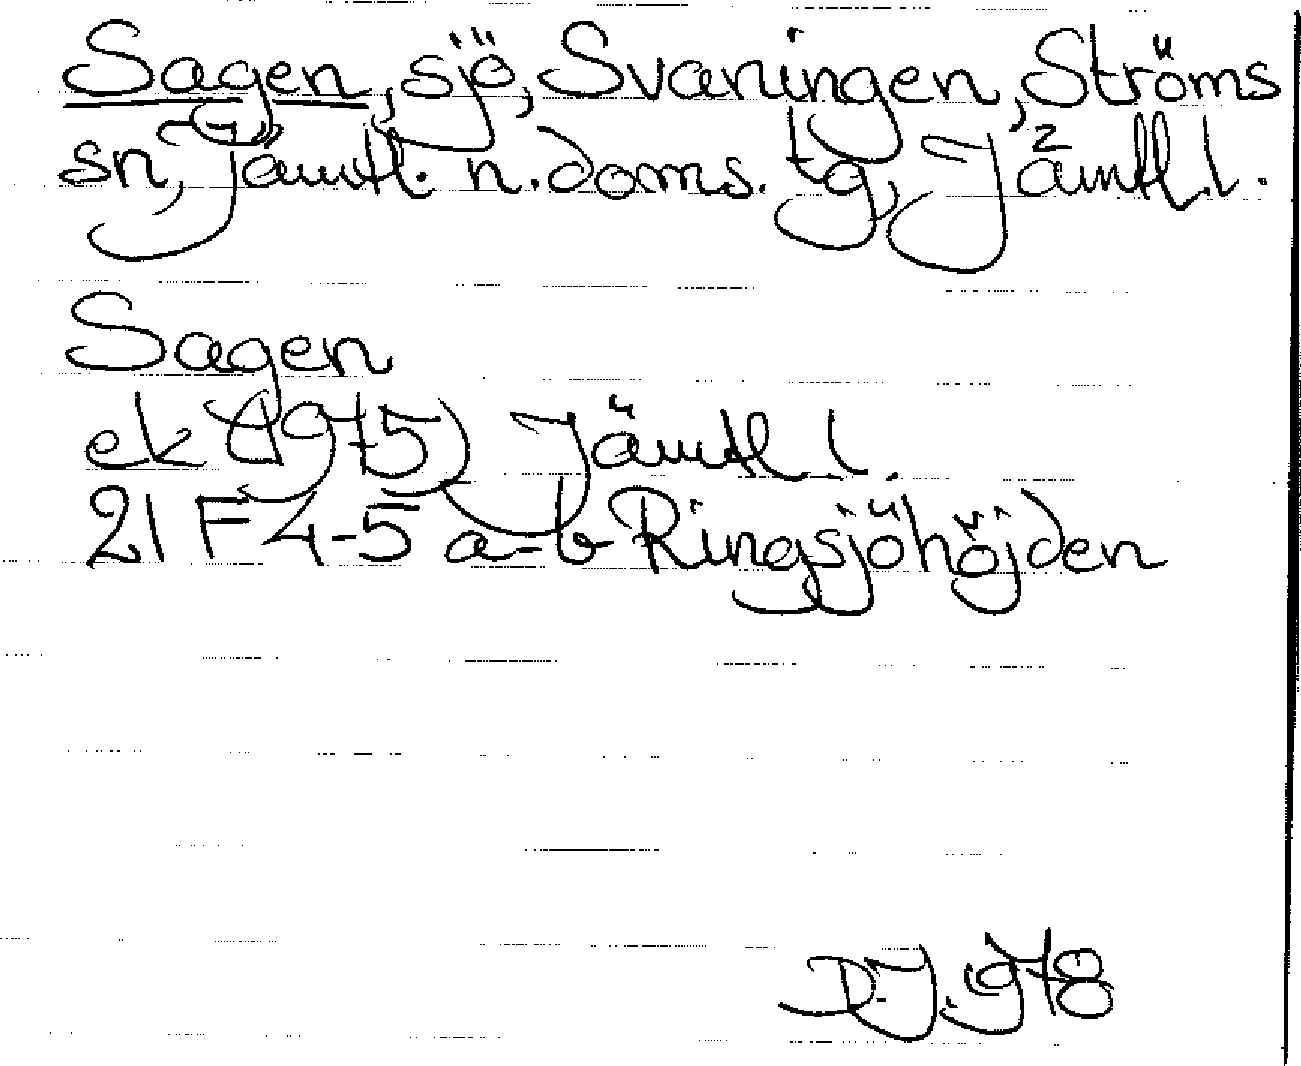 Sagen, sjö, Svaningen, Ströms
sn, Jämtl. n. doms. tg, Jämtl. l.
Sagen
ek (1975) Jämtl l.
21 F 4-5 a-b Ringsjöhöjden
D.J. 1978